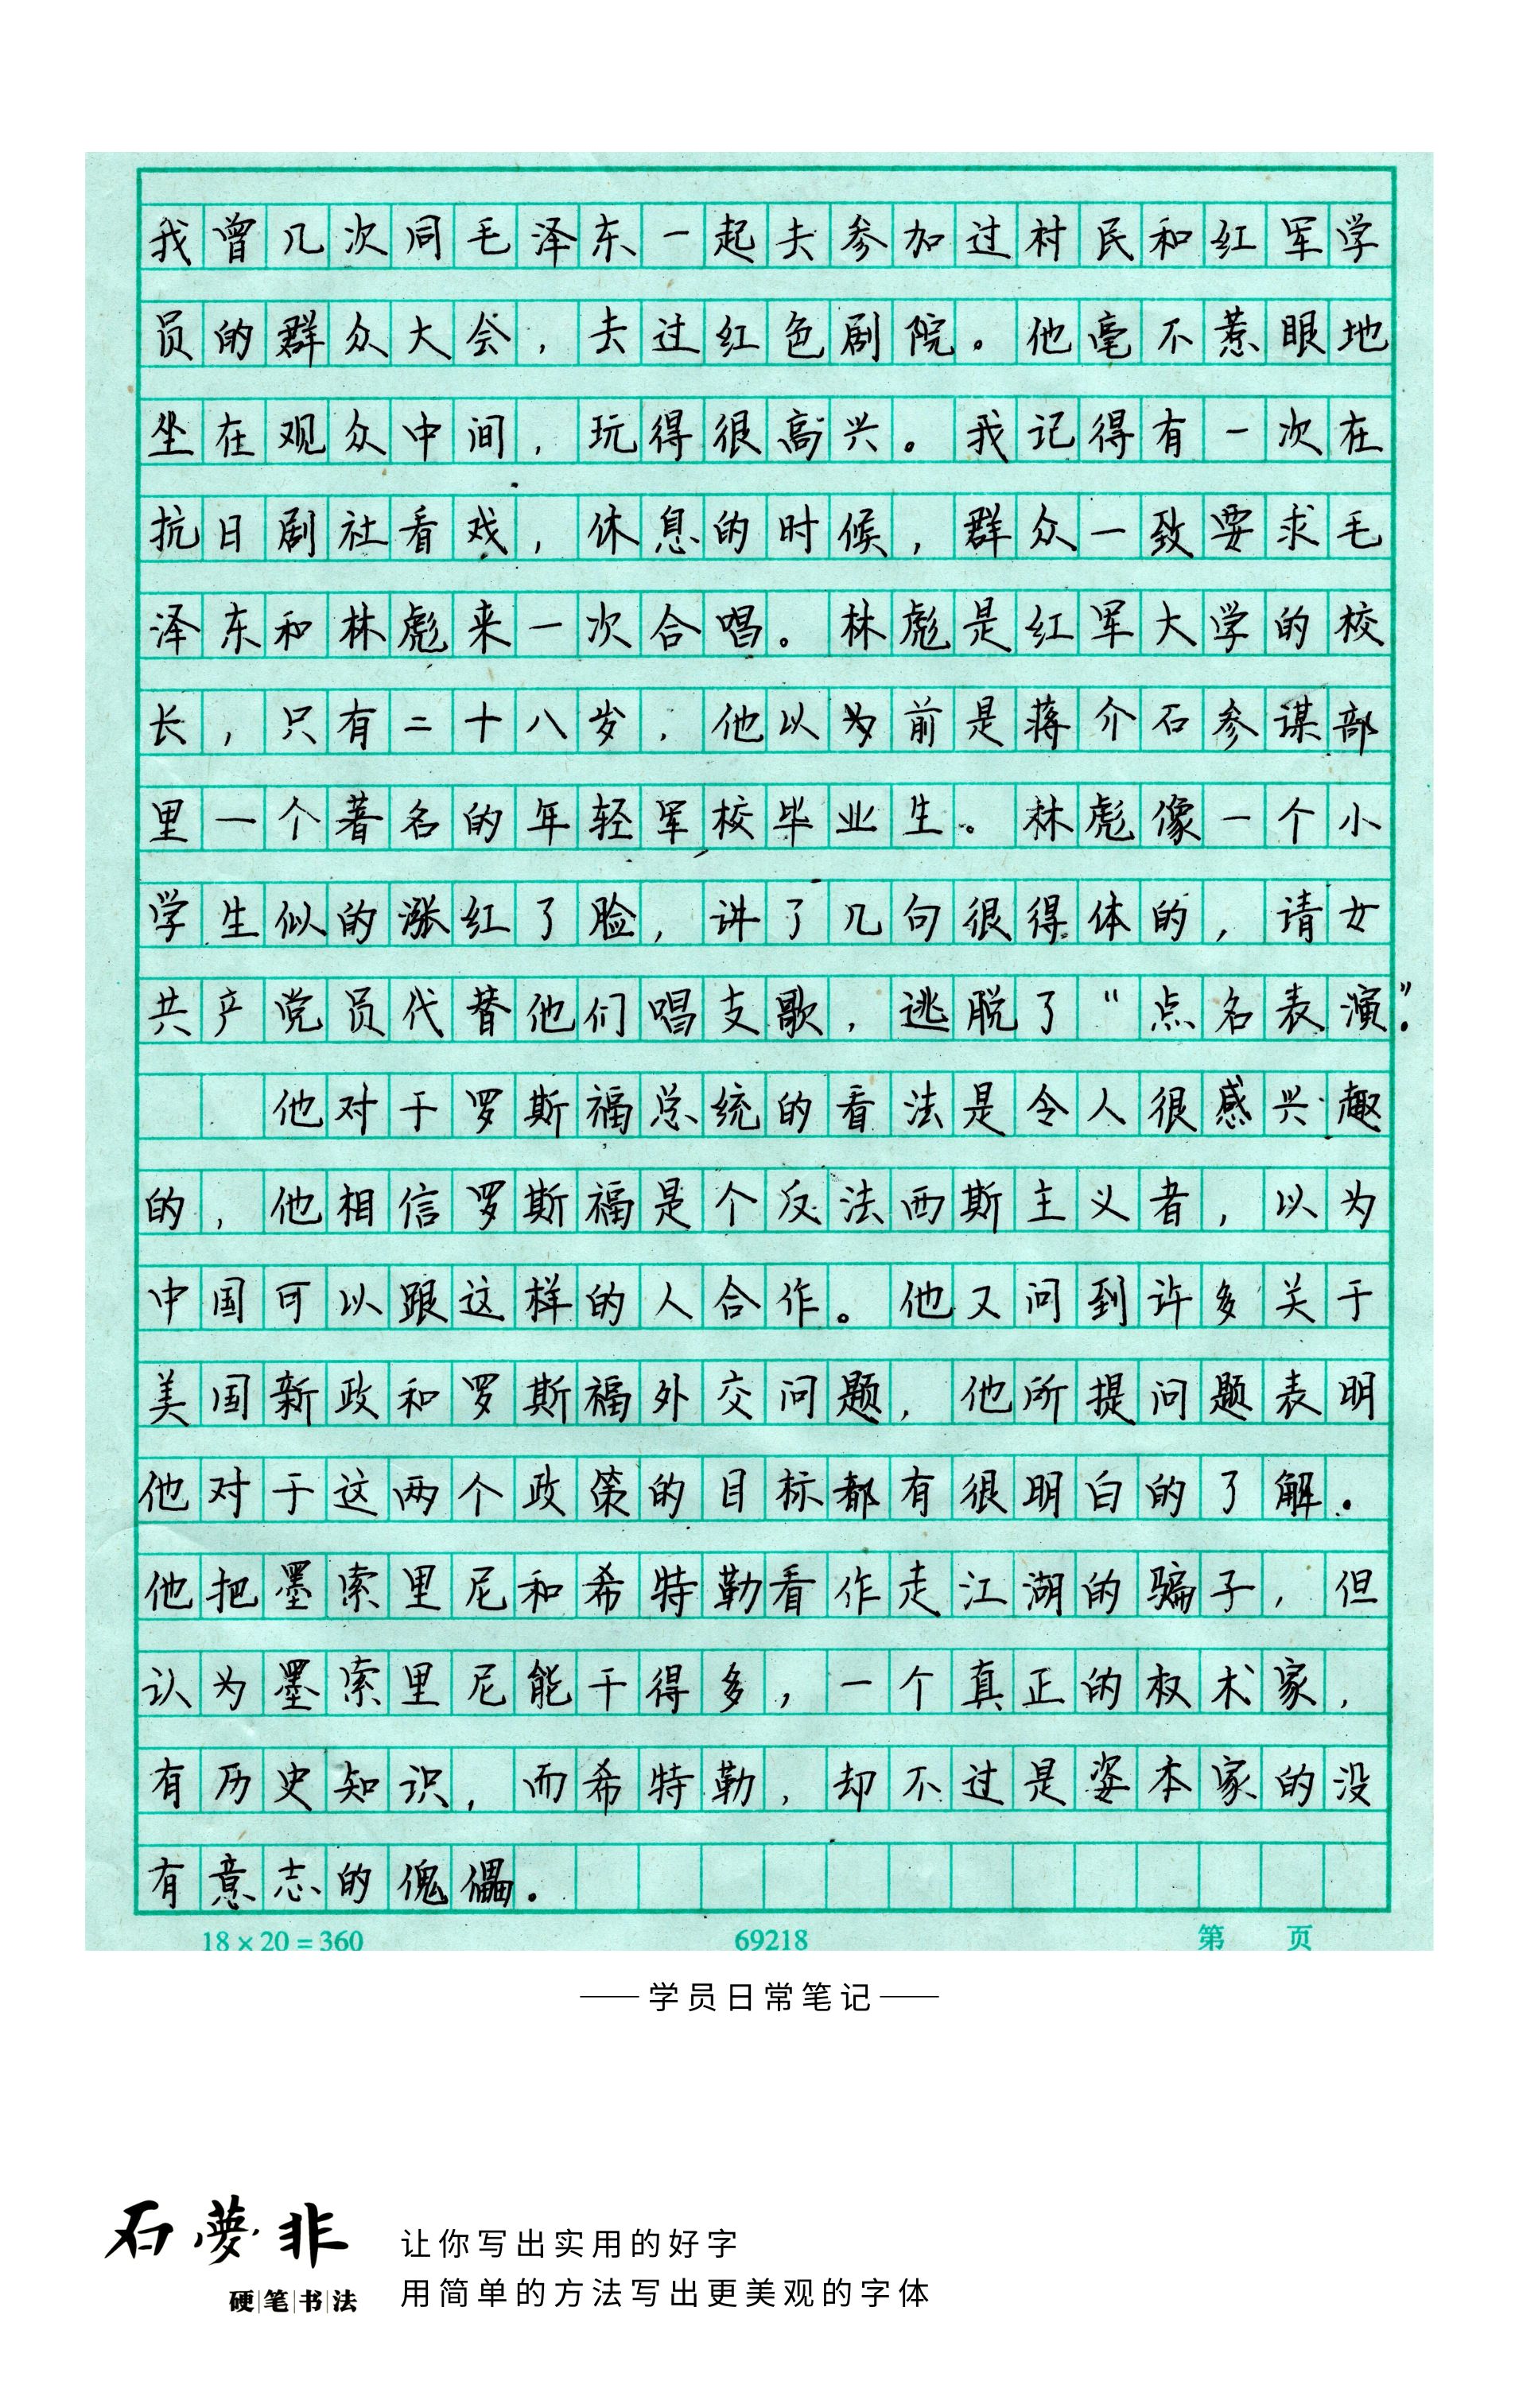 我曾几次同毛泽东一起去参加过村民和红军学
员的群众大会，去过红色剧院。他毫不惹眼地
坐在观众中间，玩得很高兴。我记得有一次在
抗日剧社看戏，休息的时候，群众一致要求毛
泽东和林彪来一次合唱。林彪是红军大学的校
长，只有二十八岁，他以为前是蒋介石参谋部
里一个著名的年轻军校毕业生。林彪像一个小
学生似的涨红了脸，讲了几句很得体的，请女
共产党员代替他们唱支歌，逃脱了“点名表演”.
他对于罗斯福总统的看法是令人很感兴趣
的，他相信罗斯福是个反法西斯主义者，以为
中国可以跟这样的人合作。他又问到许多关于
美国新政和罗斯福外交问题，他所提问题表明
他对于这两个政策的目标都有很明白的了解.
他把墨索里尼和希特勒看作走江湖的骗子，但
认为墨索里尼能干得多，一个真正的权术家，
有历史知识，而希特勒，却不过是资本家的没
有意志的傀儡.
18×20=360 69218 第 页
学员日常笔记
石夢非
硬笔书法
让你写出实用的好字
用简单的方法写出更美观的字体